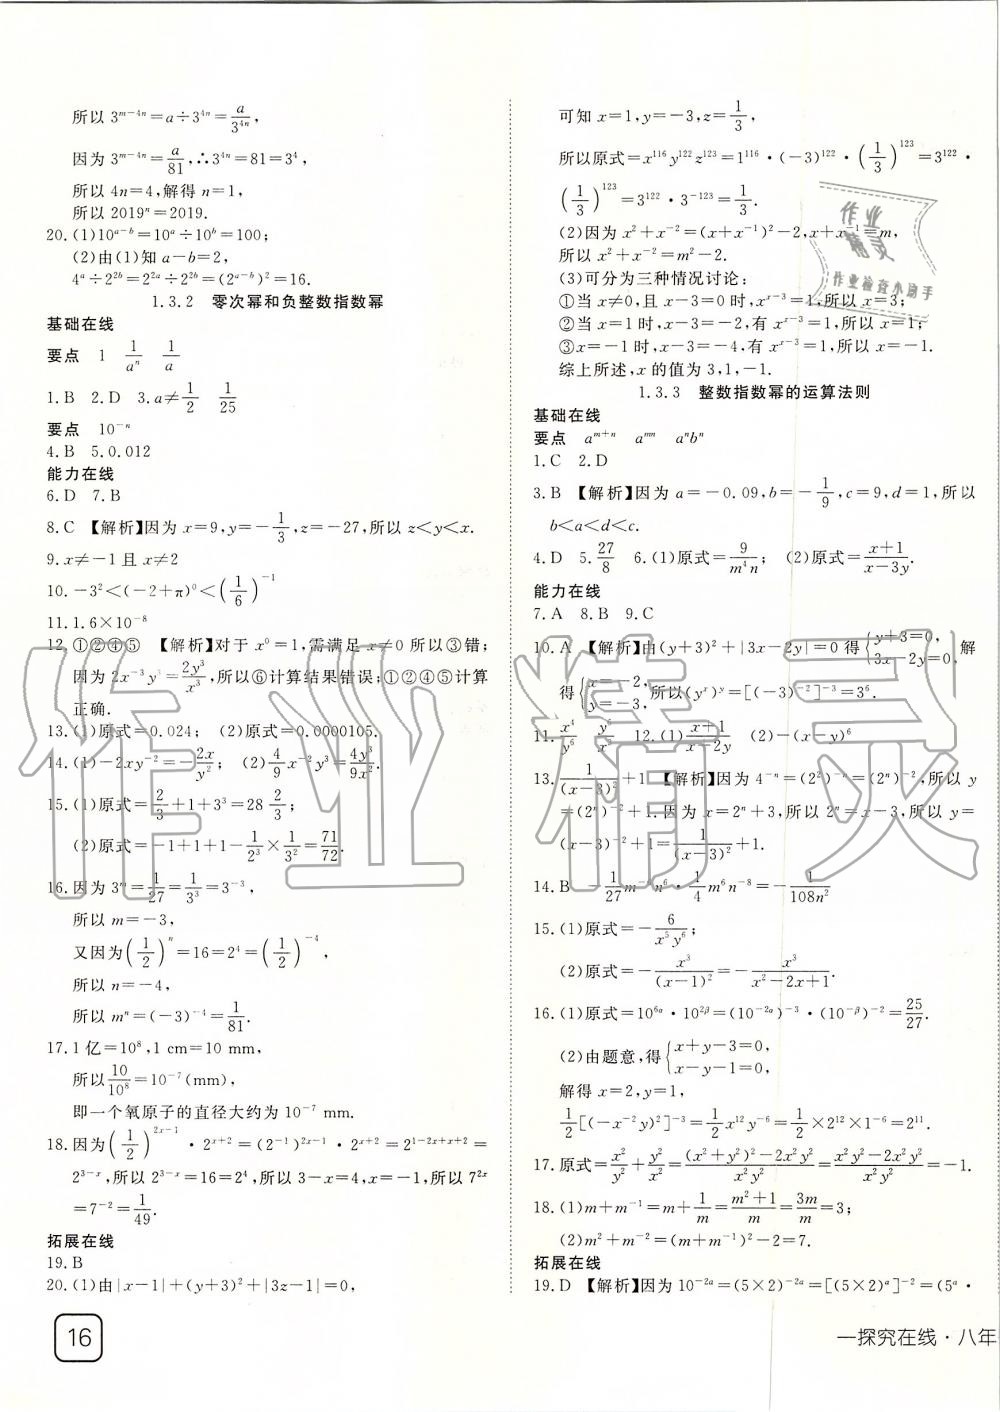 所以 3^{m-4n}=a÷3^{4n}=a/3^{4n},
因为 3^{m-4n}=a/81,∴3^{4n}=81=3^4,
所以 4n=4,解得 n=1,
所以 2019^n=2019.
20.(1)10^{a-b}=10^a÷10^b=100;
(2)由(1)知 a-b=2,
4^a÷2^{2b}=2^{2a}÷2^{2b}=(2^{a-b})^2=16.
1.3.2 零次幂和负整数指数幂
基础在线
要点 1 1/a^n 1/a
1.B 2.D 3.a≠1/2 1/25
要点 10^{-n}
4.B 5.0.012
能力在线
6.D 7.B
8.C 【解析】因为 x=9,y=-1/3,z=-27,所以 z<y<x.
9.x≠-1 且 x≠2
10.-3^2<(-2+π)^0<(1/6)^{-1}
11.1.6×10^{-8}
12.①②④⑤ 【解析】对于 x^0=1,需满足 x≠0 所以③错;
因为 2x^{-3}y^3=2y^3/x^3,所以⑥计算结果错误;①②④⑤计算
正确.
13.(1)原式=0.024; (2)原式=0.0000105.
14.(1)-2xy^{-2}=-2x/y^2; (2)4/9x^{-2}y^3=4y^3/9x^2.
15.(1)原式=2/3+1+3^3=28 2/3;
(2)原式=-1+1+1-1/2^3×1/3^2=71/72.
16.因为 3^m=1/27=1/3^3=3^{-3},
所以 m=-3,
又因为(1/2)^n=16=2^4=(1/2)^{-4},
所以 n=-4,
所以 m^n=(-3)^{-4}=1/81.
17.1 亿=10^8,1 cm=10 mm,
所以10/10^8=10^{-7}(mm),
即一个氧原子的直径大约为 10^{-7} mm.
18.因为(1/2)^{2x-1}·2^{x+2}=(2^{-1})^{2x-1}·2^{x+2}=2^{1-2x+x+2}=
2^{3-x},所以 2^{3-x}=16=2^4,所以 3-x=4,x=-1,所以 7^{2x}
=7^{-2}=1/49.
拓展在线
19.B
20.(1)由|x-1|+(y+3)^2+|3z-1|=0,
16
可知 x=1,y=-3,z=1/3,
所以原式=x^{116}y^{122}z^{123}=1^{116}·(-3)^{122}·(1/3)^{123}=3^{122}·
(1/3)^{123}=3^{122}·3^{-123}=1/3.
(2)因为 x^2+x^{-2}=(x+x^{-1})^2-2,x+x^{-1}=m,
所以 x^2+x^{-2}=m^2-2.
(3)可分为三种情况讨论:
①当 x=3,且 x-3=0 时,x^{x-3}=1,所以 x=3;
②当 x=1 时,x-3=-2,有 x^{x-3}=1,所以 x=1;
③x=-1 时,x-3=-4,有 x^{x-3}=1,所以 x=-1.
综上所述,x 的值为 3,1,-1.
1.3.3 整数指数幂的运算法则
基础在线
要点 a^{m+n} a^{mn} a^n b^n
1.C 2.D
3.B 【解析】因为 a=-0.09,b=-1/9,c=9,d=1,所以
b<a<d<c.
4.D 5.27/8 6.(1)原式=9/m^4n; (2)原式=x+1/x-3y.
能力在线
7.A 8.B 9.C
10.A 【解析】由(y+3)^2+|3x-2y|=0 得{y+3=0, 3x-2y=0, 解
得{x=-2, y=-3, 所以(y^x)^y=[(-3)^{-2}]^{-3}=3^6.
11.x^4/y^6 y^6/x^5 12.(1)x+1/x-2y (2)-(x-y)^6
13.1/(x-3)^2+1 【解析】因为 4^{-n}=(2^2)^{-n}=(2^n)^{-2},所以 y
=(2^n)^{-2}+1.因为 x=2^n+3,所以 2^n=x-3,所以 y=
(x-3)^{-2}+1=1/(x-3)^2+1.
14.B -1/27m^{-6}n^6·1/4m^6n^{-8}=-1/108n^2
15.(1)原式=-6/x^5y^6;
(2)原式=-x^3/(x-1)^2=-x^3/x^2-2x+1.
16.(1)原式=10^{6α}·10^{2β}=(10^{-2α})^{-3}·(10^{-β})^{-2}=25/27.
(2)由题意,得{x+y-3=0, x-y-1=0,
解得 x=2,y=1,
1/2[(-x^{-2}y)^2]^{-3}=1/2x^{12}y^{-6}=1/2×2^{12}×1^{-6}=2^{11}.
17.原式=x^2/y^2+y^2/x^2=(x^2+y^2)^2-2x^2y^2/x^2y^2=x^2y^2-2x^2y^2/x^2y^2=-1.
18.(1)m+m^{-1}=m+1/m=m^2+1/m=3m/m=3;
(2)m^2+m^{-2}=(m+m^{-1})^2-2=7.
拓展在线
19.D 【解析】因为 10^{-2a}=(5×2)^{-2a}=[(5×2)^a]^{-2}=(5^a·
一探究在线·八年
作业
精灵
作业检查小助手
作业精灵